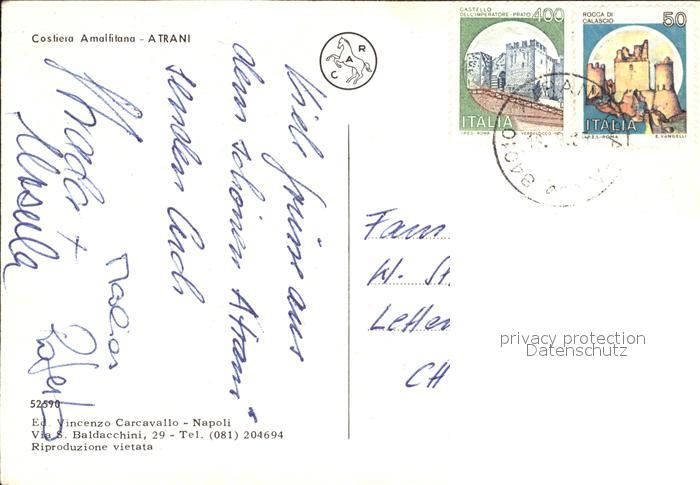 Costiera Amalfitana - ATRANI
R
A
C
CASTELLO
DELL'IMPERATORE - PRATO
400
ITALIA
I.P.Z.S. ROMA
ROCCA DI
CALASCIO
50
ITALIA
I.P.Z.S. - ROMA
E. VANGELLI
84010
Viele Grüsse aus
dem schönen Atrani
senden Euch
+
Ursula
Fam
W. St
CH
privacy protection
Datenschutz
52590
Ed. Vincenzo Carcavallo - Napoli
Via S. Baldacchini, 29 - Tel. (081) 204694
Riproduzione vietata